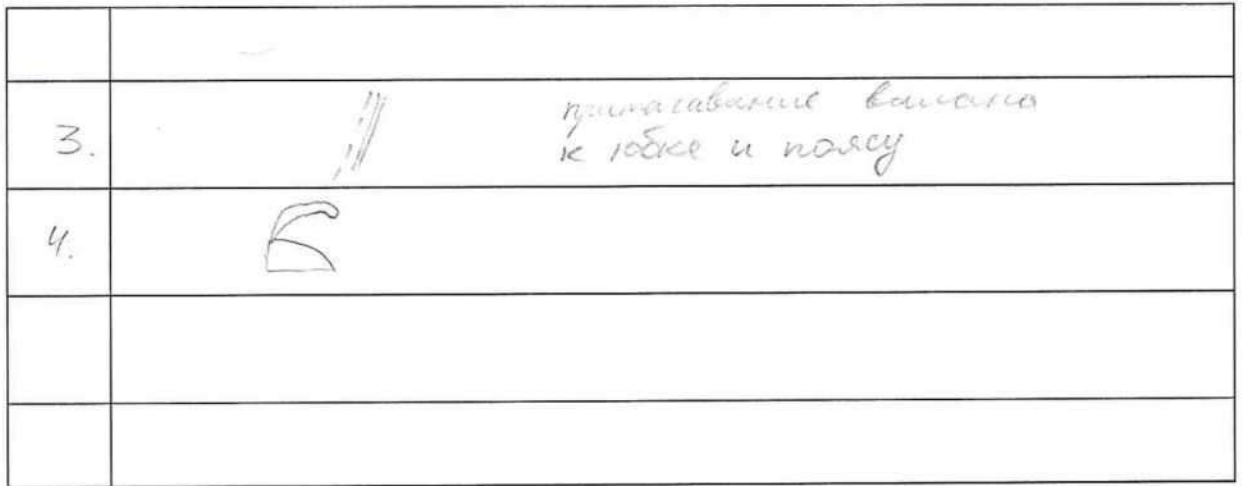 3.
притачивание волана
к юбке и поясу
4.